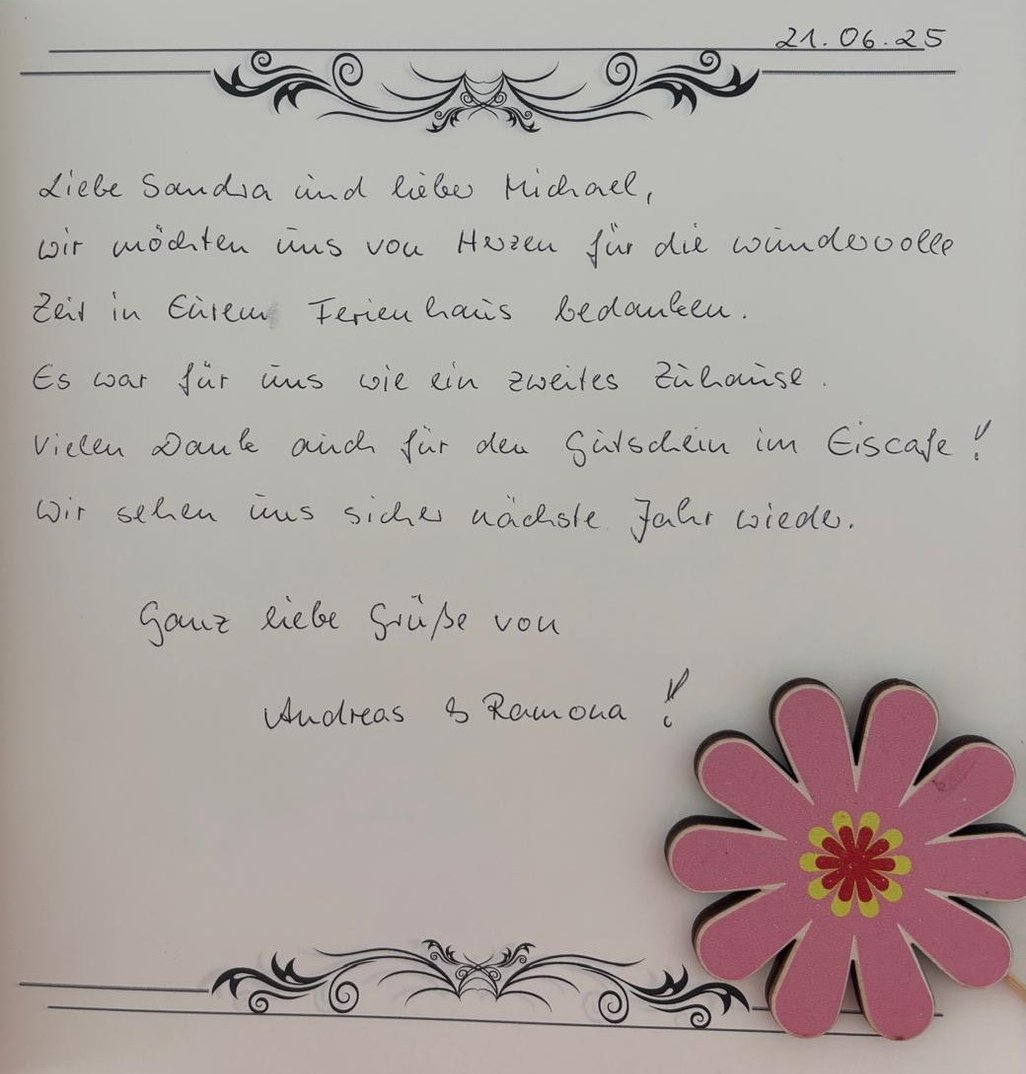 21.06.25
Liebe Sandra und lieber Michael,
wir möchten uns von Herzen für die wundervolle
Zeit in Eurem Ferienhaus bedanken.
Es war für uns wie ein zweites Zuhause.
Vielen Dank auch für den Gutschein im Eiscafe!
Wir sehen uns sicher nächste Jahr wieder.
Ganz liebe Grüße von
Andreas & Ramona!